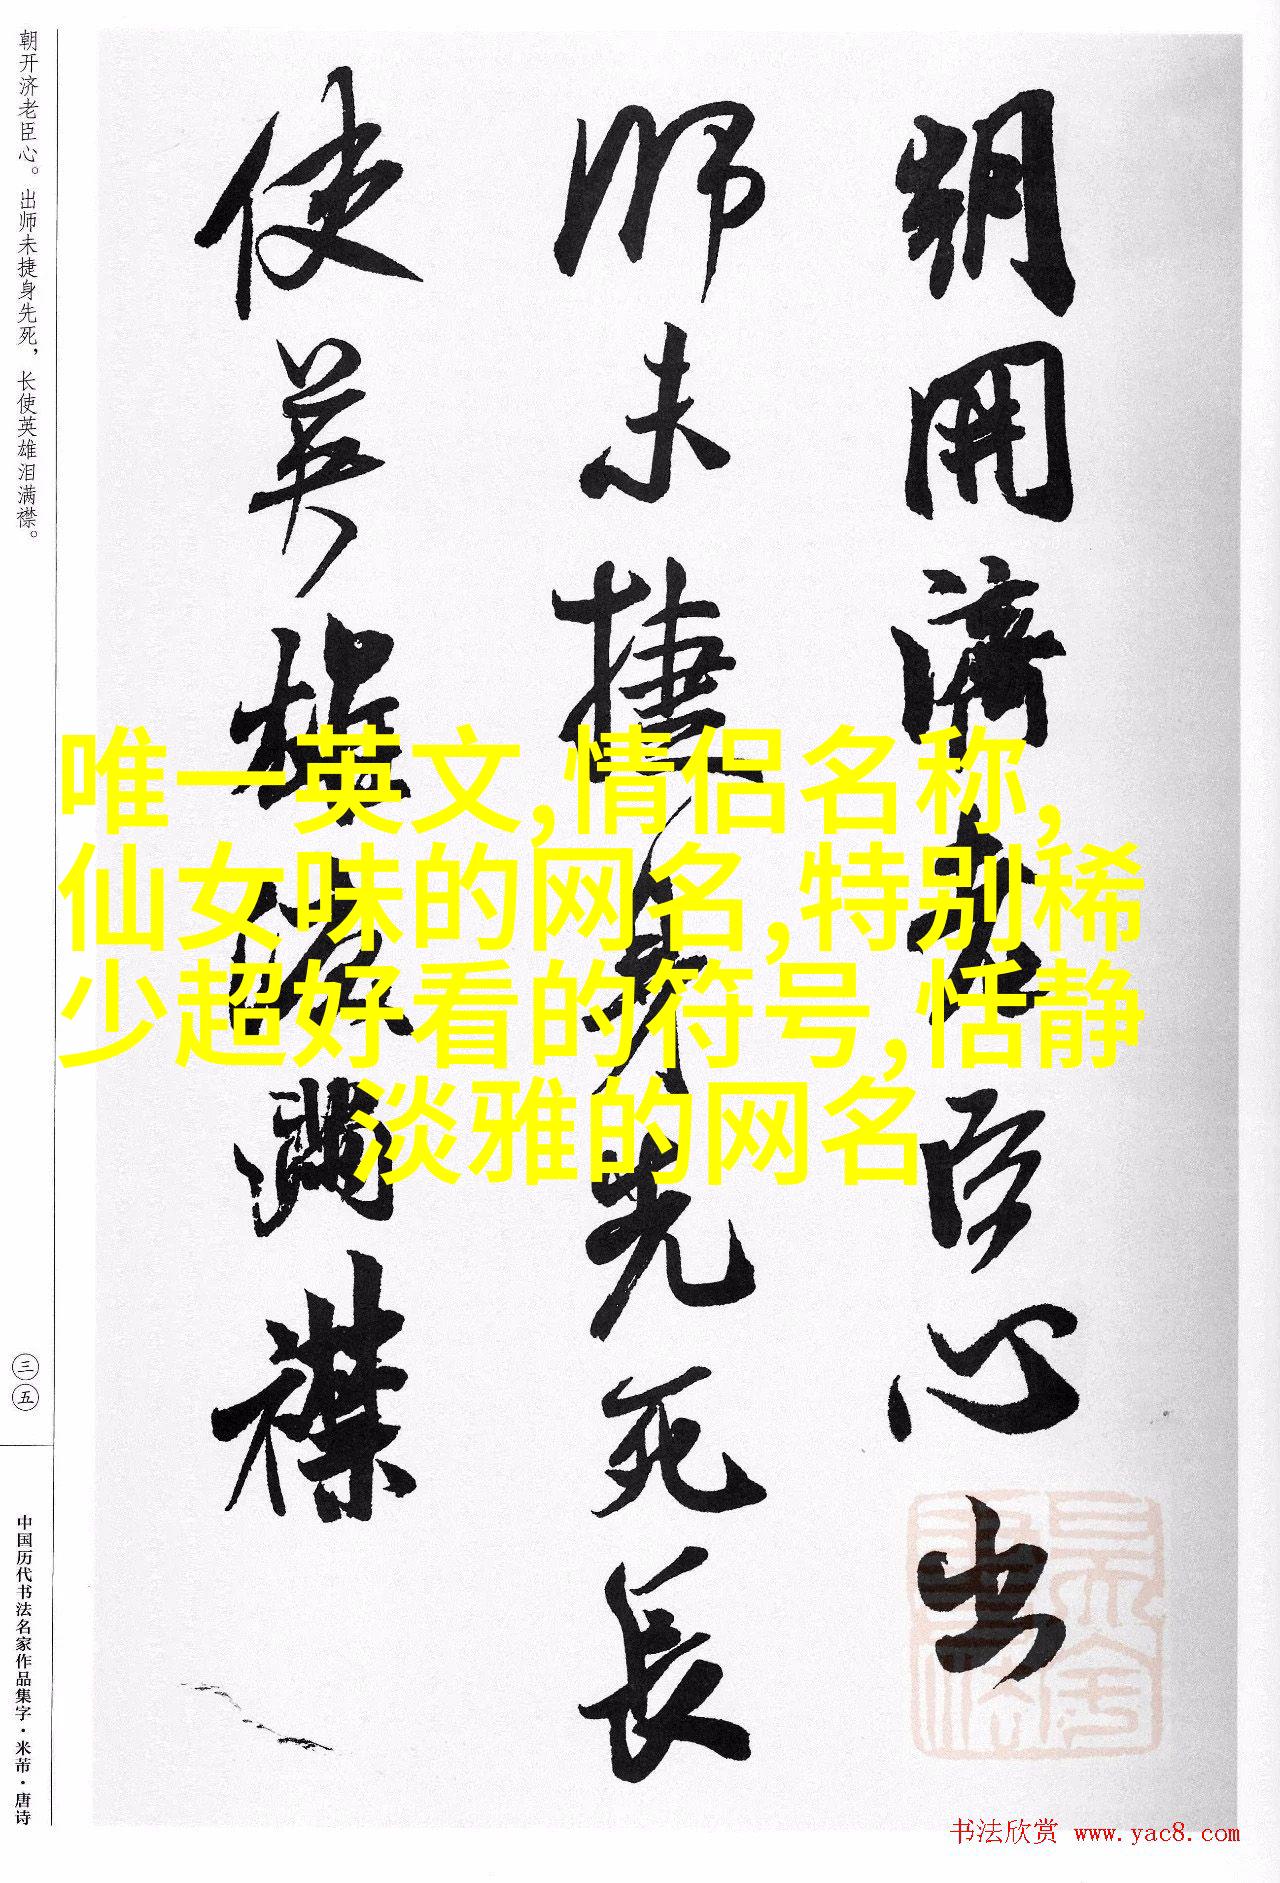 朝开济老臣心。出师未捷身先死，长使英雄泪满襟。
三五
中国历代书法名家作品集字·米芾·唐诗
朝開濟老臣心出
師未捷身先死長
使英雄淚滿襟
唯一英文,情侣名称,
仙女味的网名,特别稀
少超好看的符号,恬静
淡雅的网名
书法欣赏 www.yac8.com